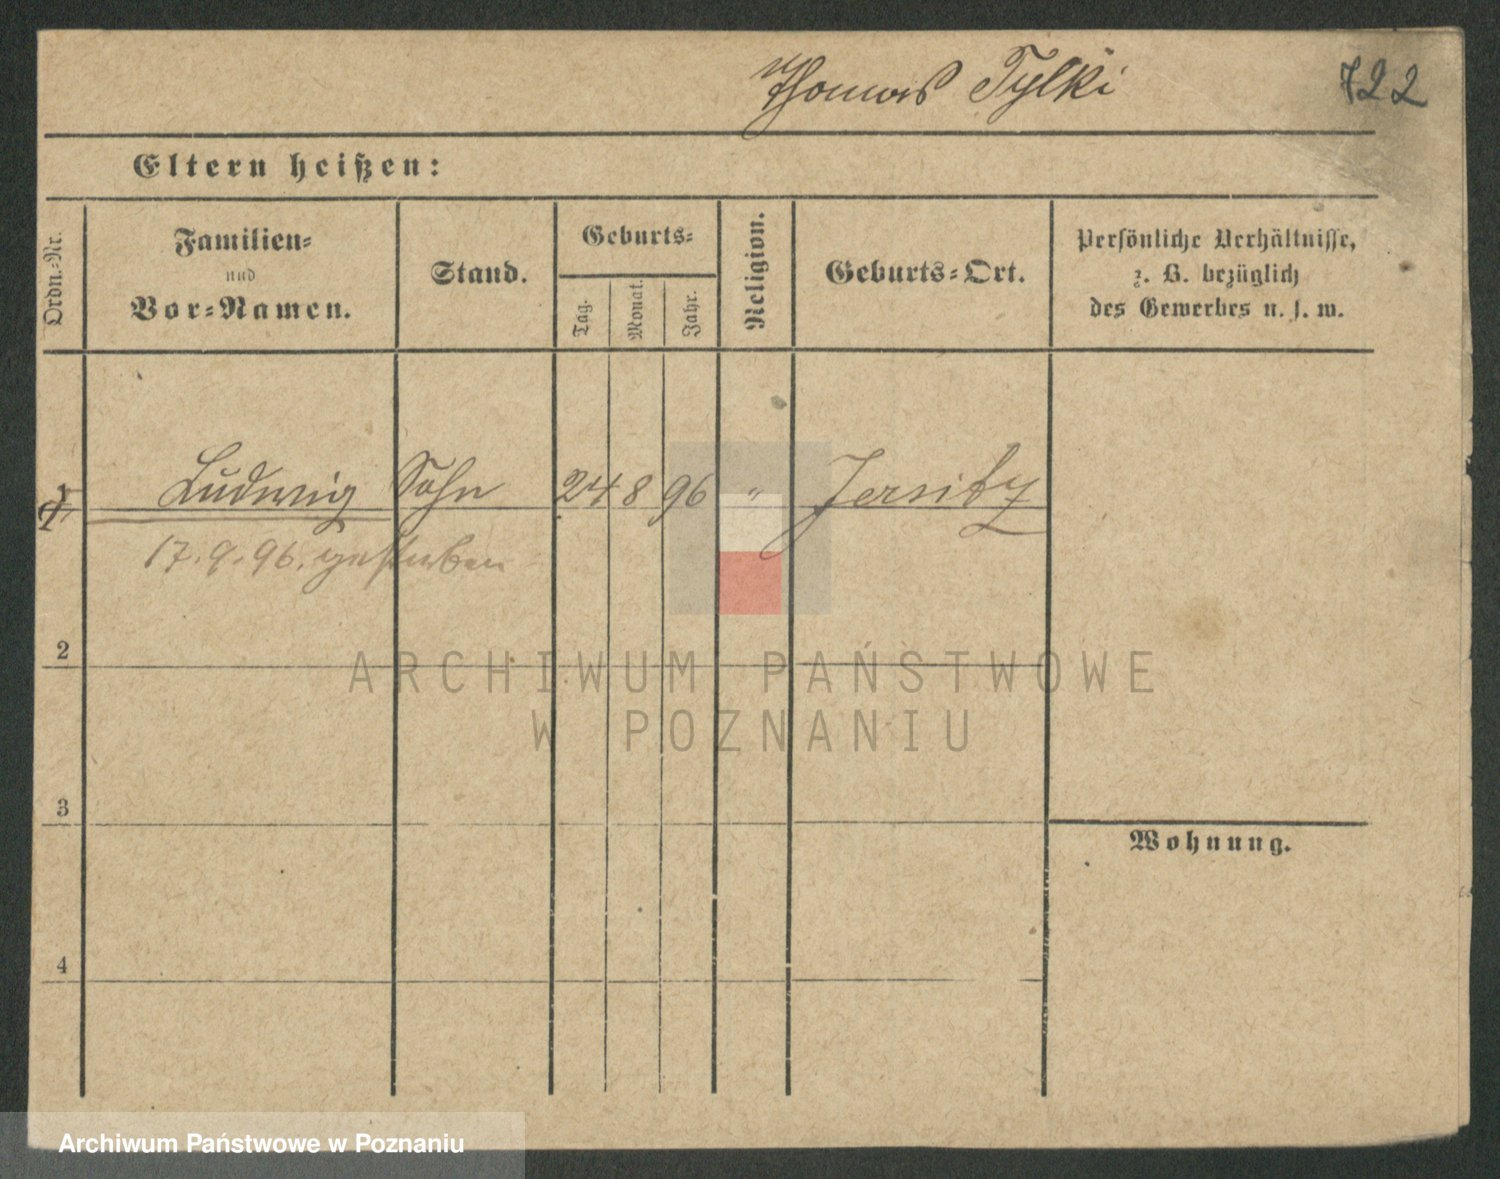 Thomas Tylki 722
Eltern heißen:
Ordn.-Nr.
Familien-
und
Vor-Namen.
Stand.
Geburts-
Tag.
Monat.
Jahr.
Religion.
Geburts-Ort.
Persönliche Verhältnisse,
z. B. bezüglich
des Gewerbes u. s. w.
1 Ludwig Sohn 24 8 96 " Jersitz
17.9.96. gestorben
2
ARCHIWUM PAŃSTWOWE
W POZNANIU
3
Wohnung.
4
Archiwum Państwowe w Poznaniu